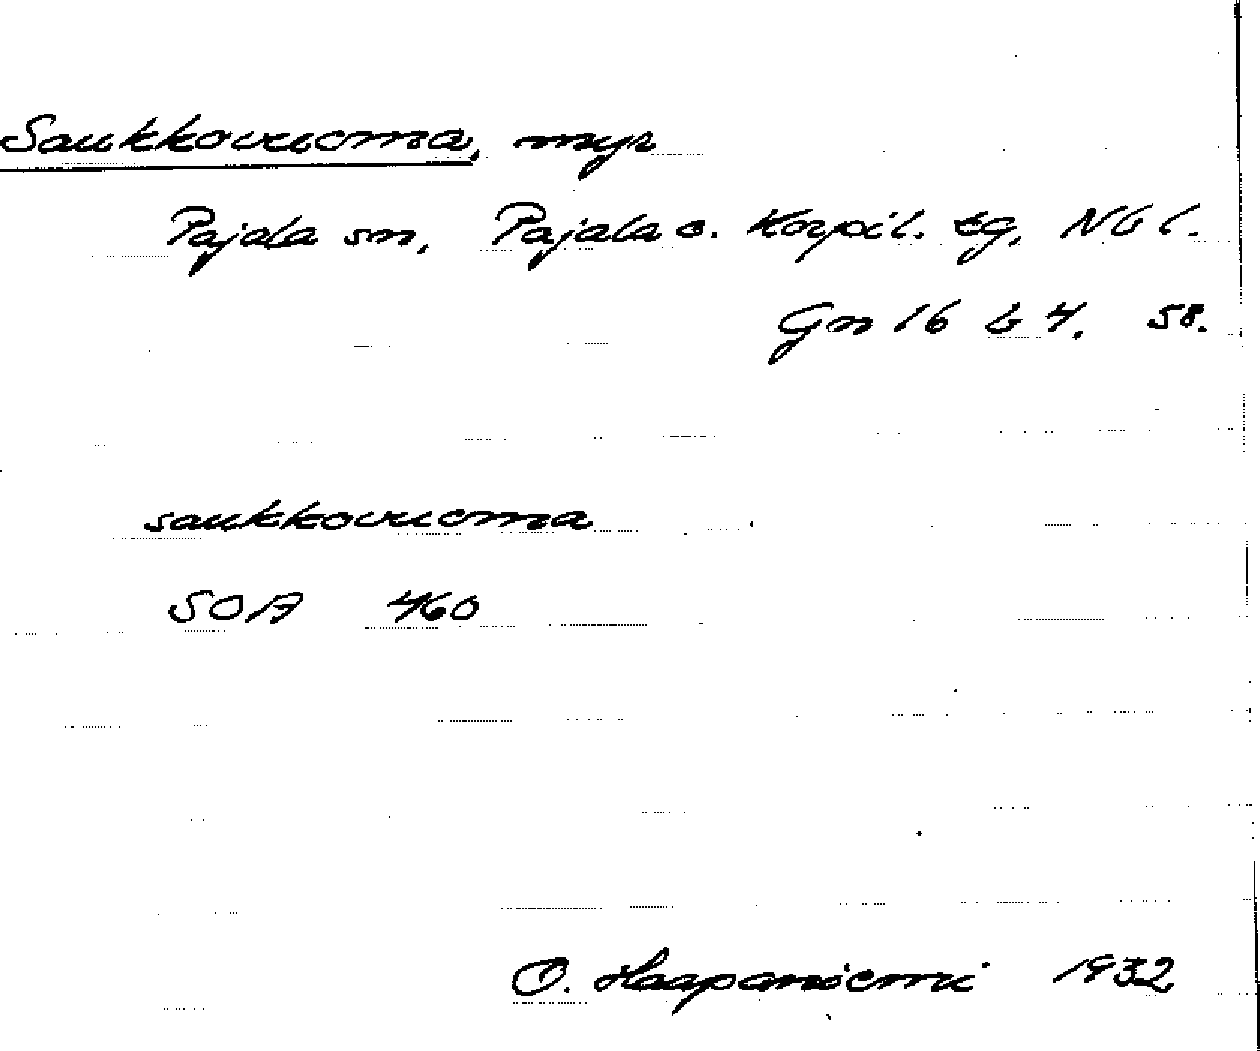 Saukkovuoma, myr
Pajala sn, Pajala o. Korpil. tg, Nb l.
Gn 16 b 4. 58.
saukkovuoma
SOA 460
O. Haapaniemi 1932